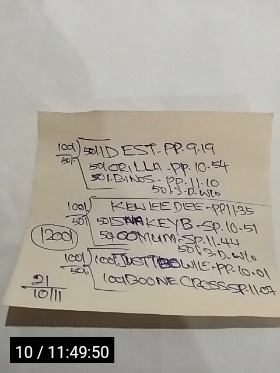 100/501 501 DEST-PP.9.19
501 ORILLA-PP.10.54
501 BINGS-PP.11.10
501-3-D.W/O
100/501 KEWLEEDEE-PP11-35
501 SNAKEYB-SP.10-51
50 OOMUM-SP.11.44
1200 501-3-D.W/O
100/501 100 JUSTT WIE-PP.10-01
21 100 BOONE CROSS SP.11.07
10/11
10 / 11:49:50